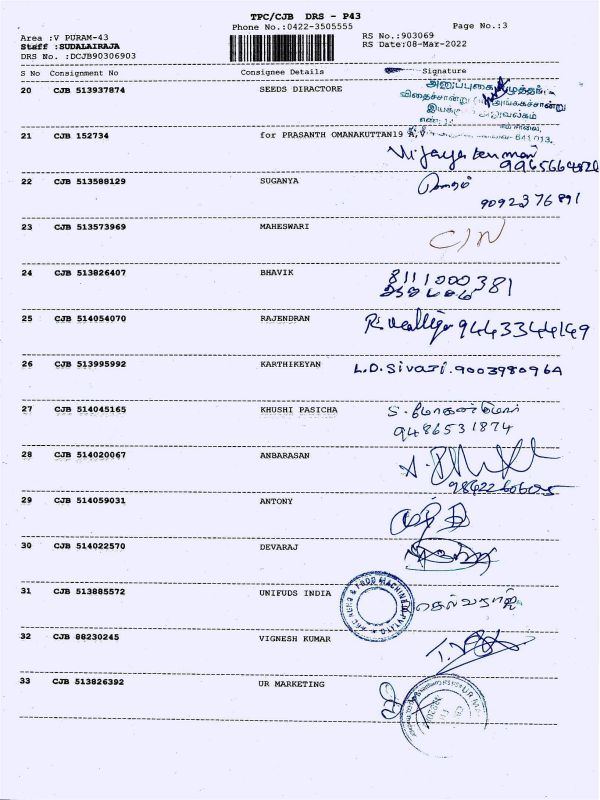 TPC/CJB DRS - P43
Phone No.:0422-3505555
Page No.:3
Area :V PURAM-43
RS No.:903069
Staff :SUDALAIRAJA
RS Date:08-Mar-2022
DRS No. :DCJB90306903
S No Consignment No Consignee Details Signature
20 CJB 513937874 SEEDS DIRACTORE
இயக்
21 CJB 152734 for PRASANTH OMANAKUTTAN19 A,V
641 013.
Vijayakumar
22 CJB 513588129 SUGANYA
9092376891
23 CJB 513573969 MAHESWARI
C/N
24 CJB 513826407 BHAVIK 8111000381
25 CJB 514054070 RAJENDRAN 9443344149
26 CJB 513995992 KARTHIKEYAN L.D.Sivaji.9003980964
27 CJB 514045165 KHUSHI PASICHA
9486531874
28 CJB 514020067 ANBARASAN
29 CJB 514059031 ANTONY
30 CJB 514022570 DEVARAJ
31 CJB 513885572 UNIFUDS INDIA செல்வராஜ்
32 CJB 88230245 VIGNESH KUMAR
33 CJB 513826392 UR MARKETING